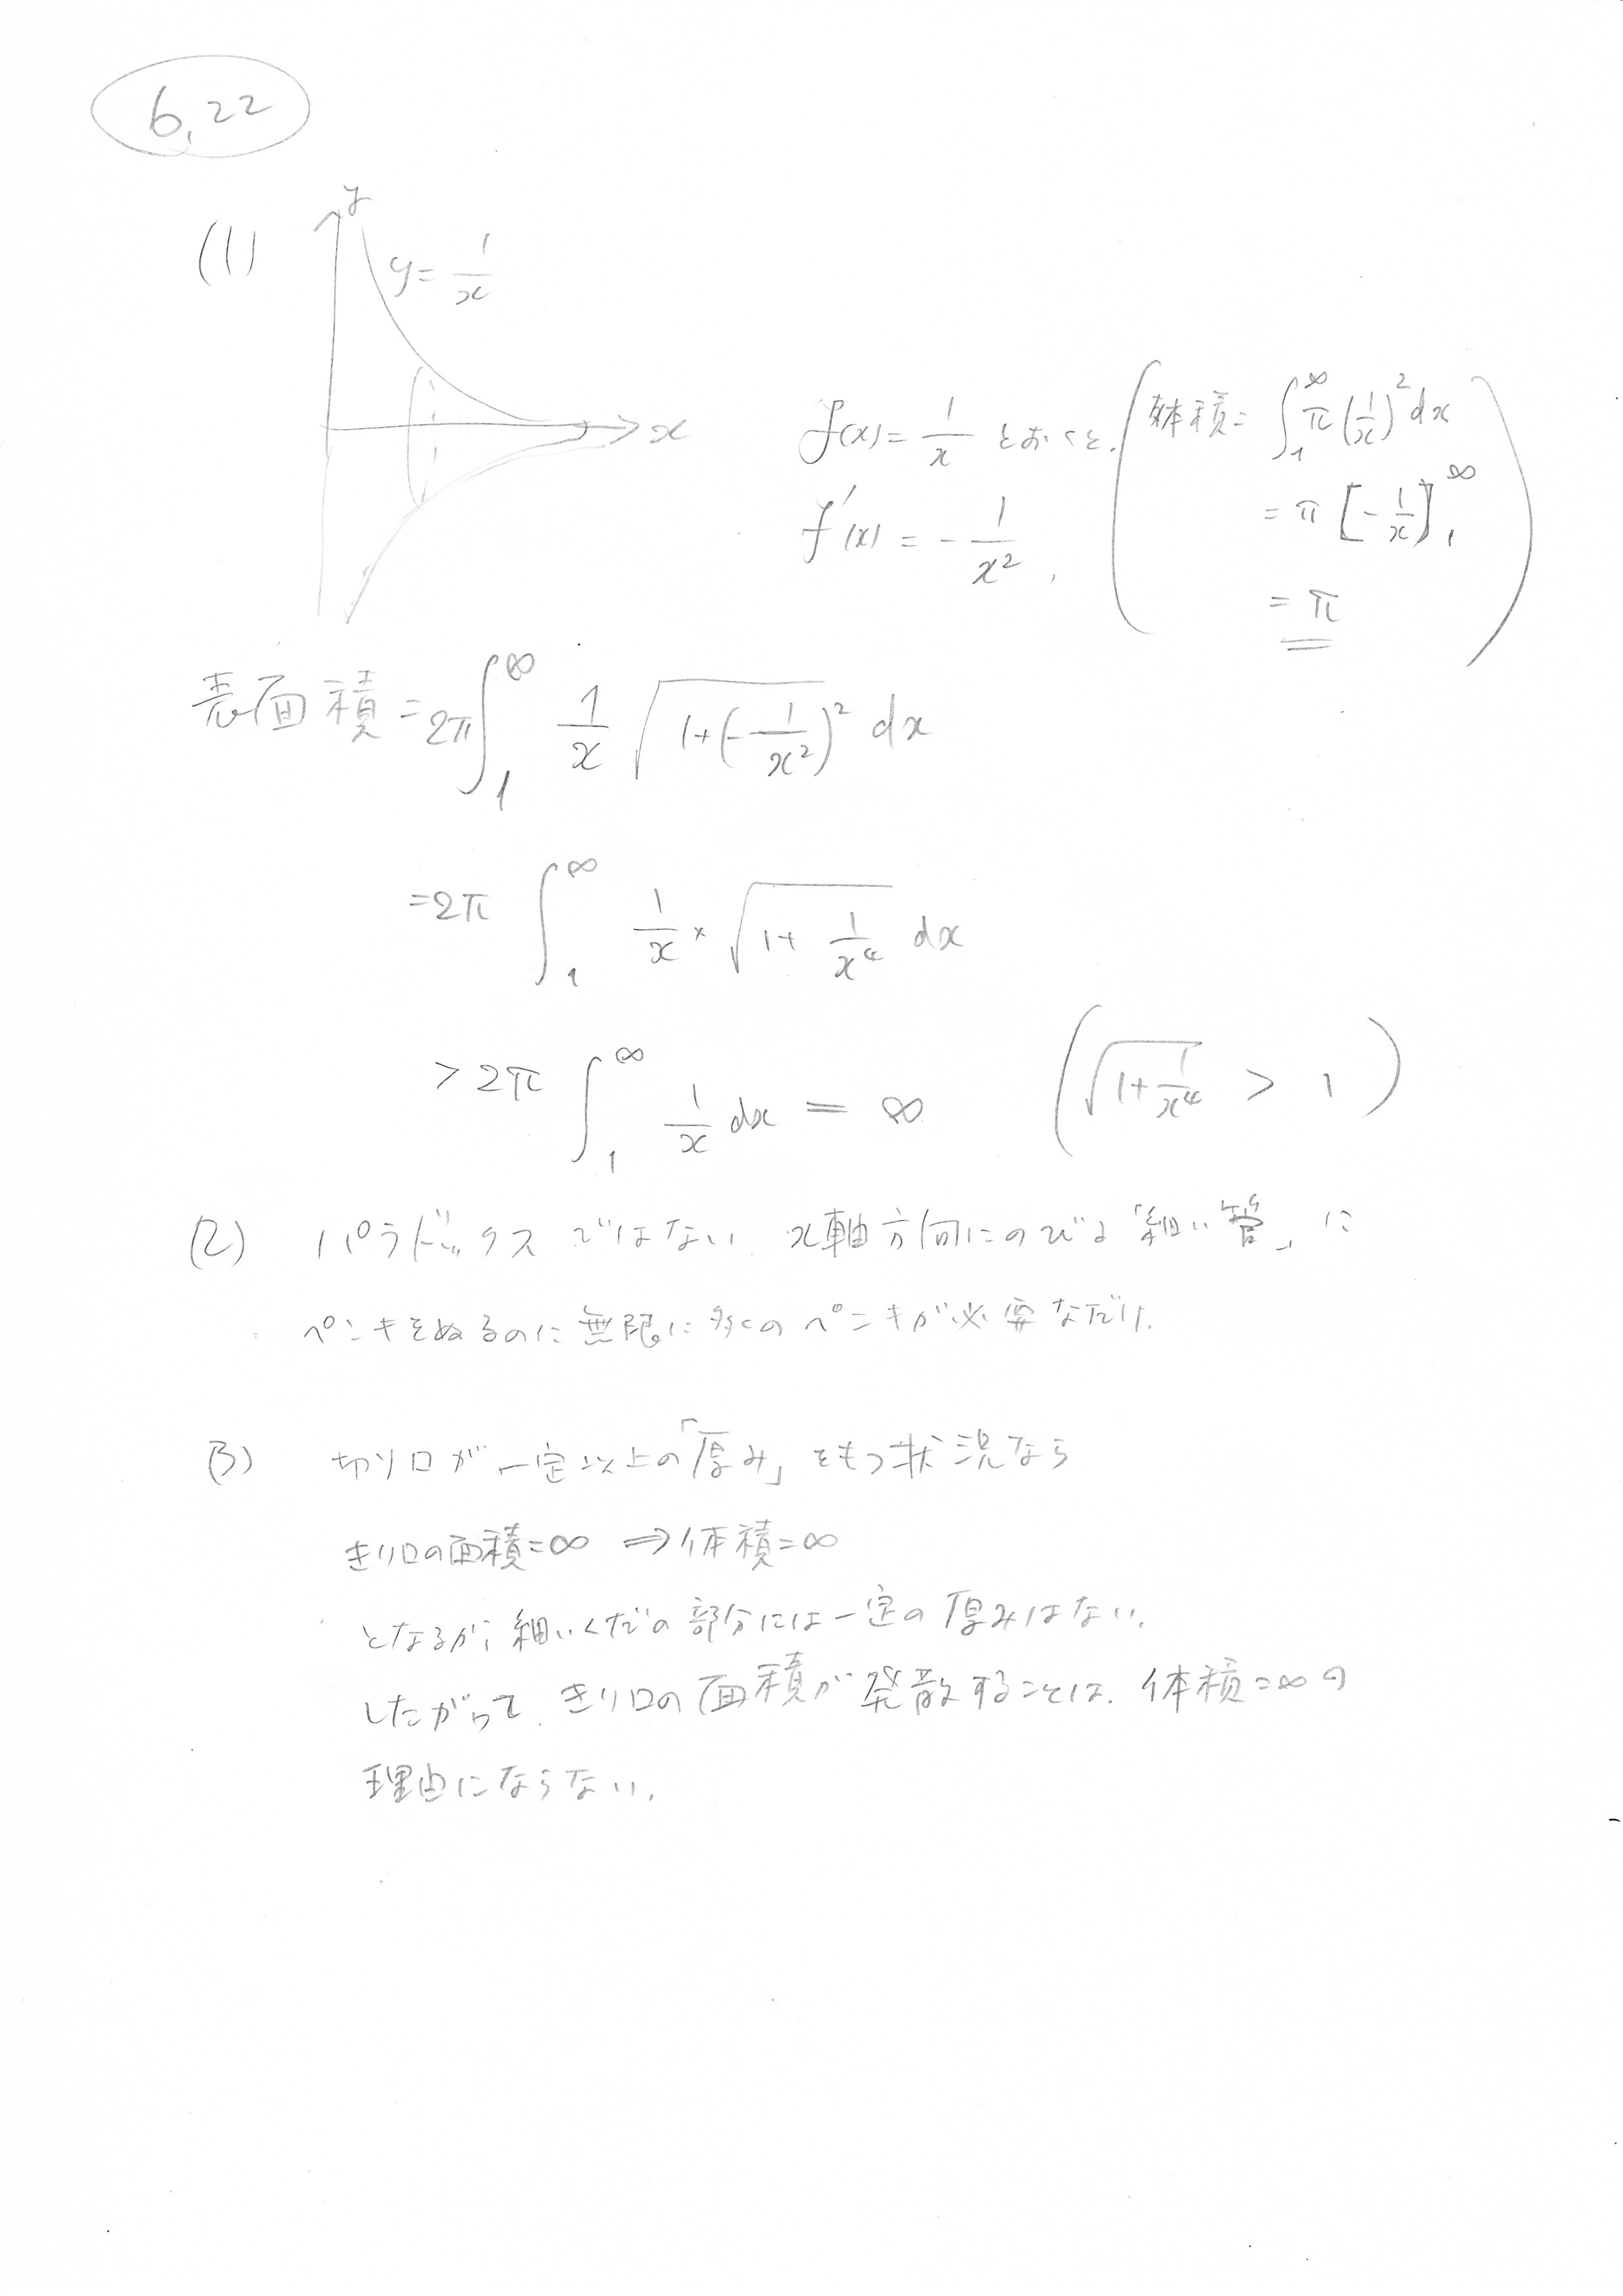 6,22
(1)
y
y = 1/x
x
f(x) = 1/x とおくと.
f'(x) = - 1/x²,
(体積 = ∫₁^∞ π(1/x)² dx
= π[-1/x]₁^∞
= π)
表面積 = 2π ∫₁^∞ 1/x √(1+(-1/x²)²) dx
= 2π ∫₁^∞ 1/x × √(1+ 1/x⁴) dx
> 2π ∫₁^∞ 1/x dx = ∞ (√(1+1/x⁴) > 1)
(2) パラドックスではない. x軸方向にのびる「細い管」に
ペンキをぬるのに無限に多くのペンキが必要なだけ.
(3) 切り口が一定以上の「厚み」をもつ状況なら
きり口の面積=∞ ⇒ 体積=∞
となるが, 細いくだの部分には一定の厚みはない.
したがって, きり口の面積が発散することは, 体積=∞の
理由にならない.